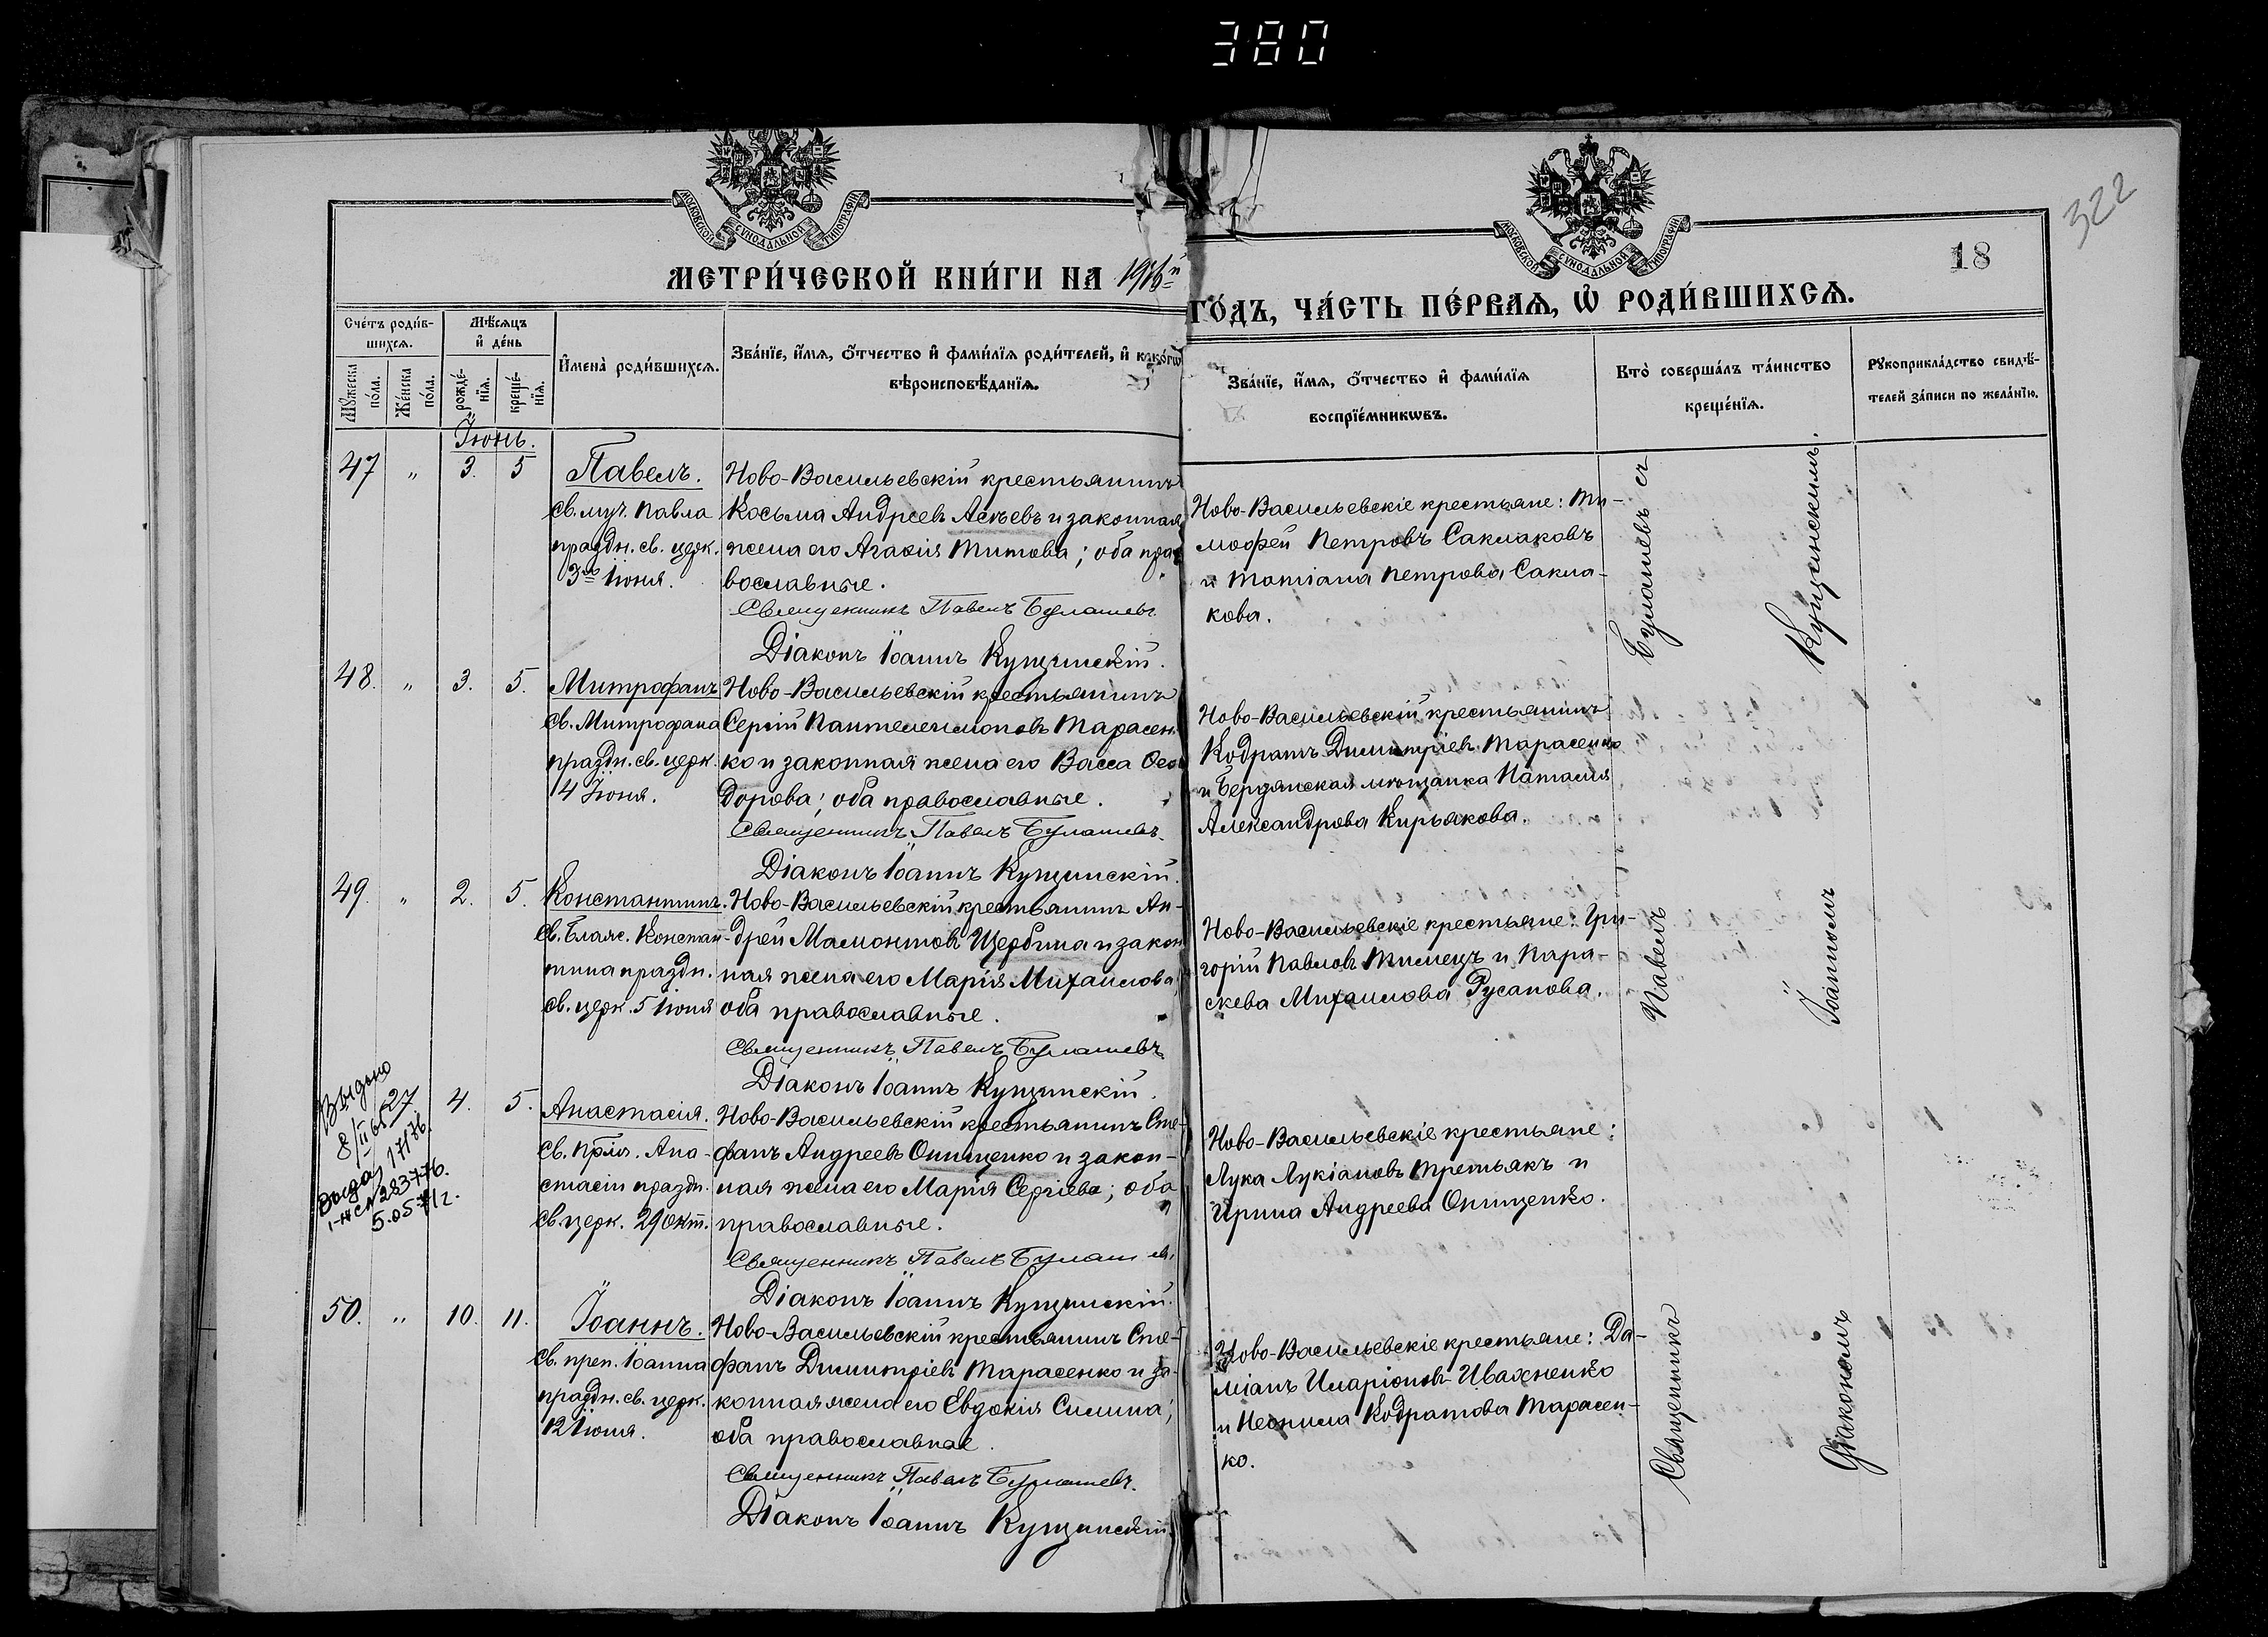 380
322
18
МОСКОВСКОЙ СѴНОДАЛЬНОЙ ТИПОГРАФІИ
МОСКОВСКОЙ СѴНОДАЛЬНОЙ ТИПОГРАФІИ
МЕТРИ́ЧЕСКОЙ КНИ́ГИ НА 1916й
ГО́ДЪ, ЧА́СТЬ ПЕ́РВАѦ, Ѡ҆ РОДИ́ВШИХСѦ.
Сче́тъ роди́в-
шихсѧ.
Мꙋ́жеска по́ла.
Же́нска по́ла.
Мѣ́сѧцъ
и҆ де́нь
рожде́-
нїѧ.
креще́-
нїѧ.
И҆мена̀ роди́вшихсѧ.
Зва́нїе, и҆́мѧ, ѻ҆́тчество и҆ фами́лїѧ роди́телей, и҆ како́гѡ
вѣроисповѣ́данїѧ.
Зва́нїе, и҆́мѧ, ѻ҆́тчество и҆ фами́лїѧ
воспрїе́мникѡвъ.
Кто̀ соверша́лъ та́инство
креще́нїѧ.
Рꙋкоприкла́дство свидѣ́-
телей за́писи по жела́нїю.
Іюнь.
47 " 3. 5
Павелъ.
св. муч. Павла
праздн. св. церк.
3го Іюня.
Ново-Васильевскій крестьянинъ
Косьма Андреевъ Асѣевъ и законная
жена его Агафія Титова; оба пра-
вославные.
Священникъ Павелъ Булашевъ
Діаконъ Іоаннъ Кущинскій.
Ново-Васильевскіе крестьяне: Ти-
мофей Петровъ Саклаковъ
и Татіана Петрова Сакла-
кова.
48. " 3. 5.
Митрофанъ
Св. Митрофана
праздн. св. церк.
14 Іюня.
Ново-Васильевскій крестьянинъ
Сергій Пантелеимоновъ Тарасен-
ко и законная жена его Васса Ѳео-
дорова; оба православные.
Священникъ Павелъ Булашевъ
Діаконъ Іоаннъ Кущинскій.
Ново-Васильевскій крестьянинъ
Кодратъ Димитріевъ Тарасенко
и Бердянская мѣщанка Наталія
Александрова Кирьякова.
49. " 2. 5.
Константинъ.
Св. Благ. Констан-
тина праздн.
св. церк. 5 Іюня
Ново-Васильевскій крестьянинъ Ан-
дрей Мамонтовъ Щербина и закон
ная жена его Марія Михаилова;
оба православные.
Священникъ Павелъ Булашевъ
Діаконъ Іоаннъ Кущинскій.
Ново-Васильевскіе крестьяне: Гри-
горій Павловъ Тимецъ и Пара-
скева Михаилова Русанова.
Выдано
8/II 65
Выдан 17/76.
5.05.71г.
27 4. 5.
Анастасія.
Св. Прмч. Ана-
стасіи праздн.
св. церк. 29 Окт.
Ново-Васильевскій крестьянинъ Сте-
фанъ Андреевъ Онищенко и закон-
ная жена его Марія Сергіева; оба
православные.
Священникъ Павелъ Булашевъ
Діаконъ Іоаннъ Кущинскій.
Ново-Васильевскіе крестьяне:
Лука Лукіановъ Третьякъ и
Ирина Андреева Онищенко.
50. " 10. 11.
Іоаннъ.
Св. преп. Іоанна
праздн. св. церк.
12 Іюня.
Ново-Васильевскій крестьянинъ Сте-
фанъ Димитріевъ Тарасенко и за-
конная жена его Евдокія Силина;
оба православнае.
Священникъ Павелъ Булашевъ.
Діаконъ Іоаннъ Кущинскій
Ново-Васильевскіе крестьяне: Да-
міанъ Иларіоновъ Ивахненко
и Неонила Кодратова Тарасен-
ко.
Священникъ Павелъ Булашевъ съ
Діакономъ Іоанномъ Кущинскимъ.